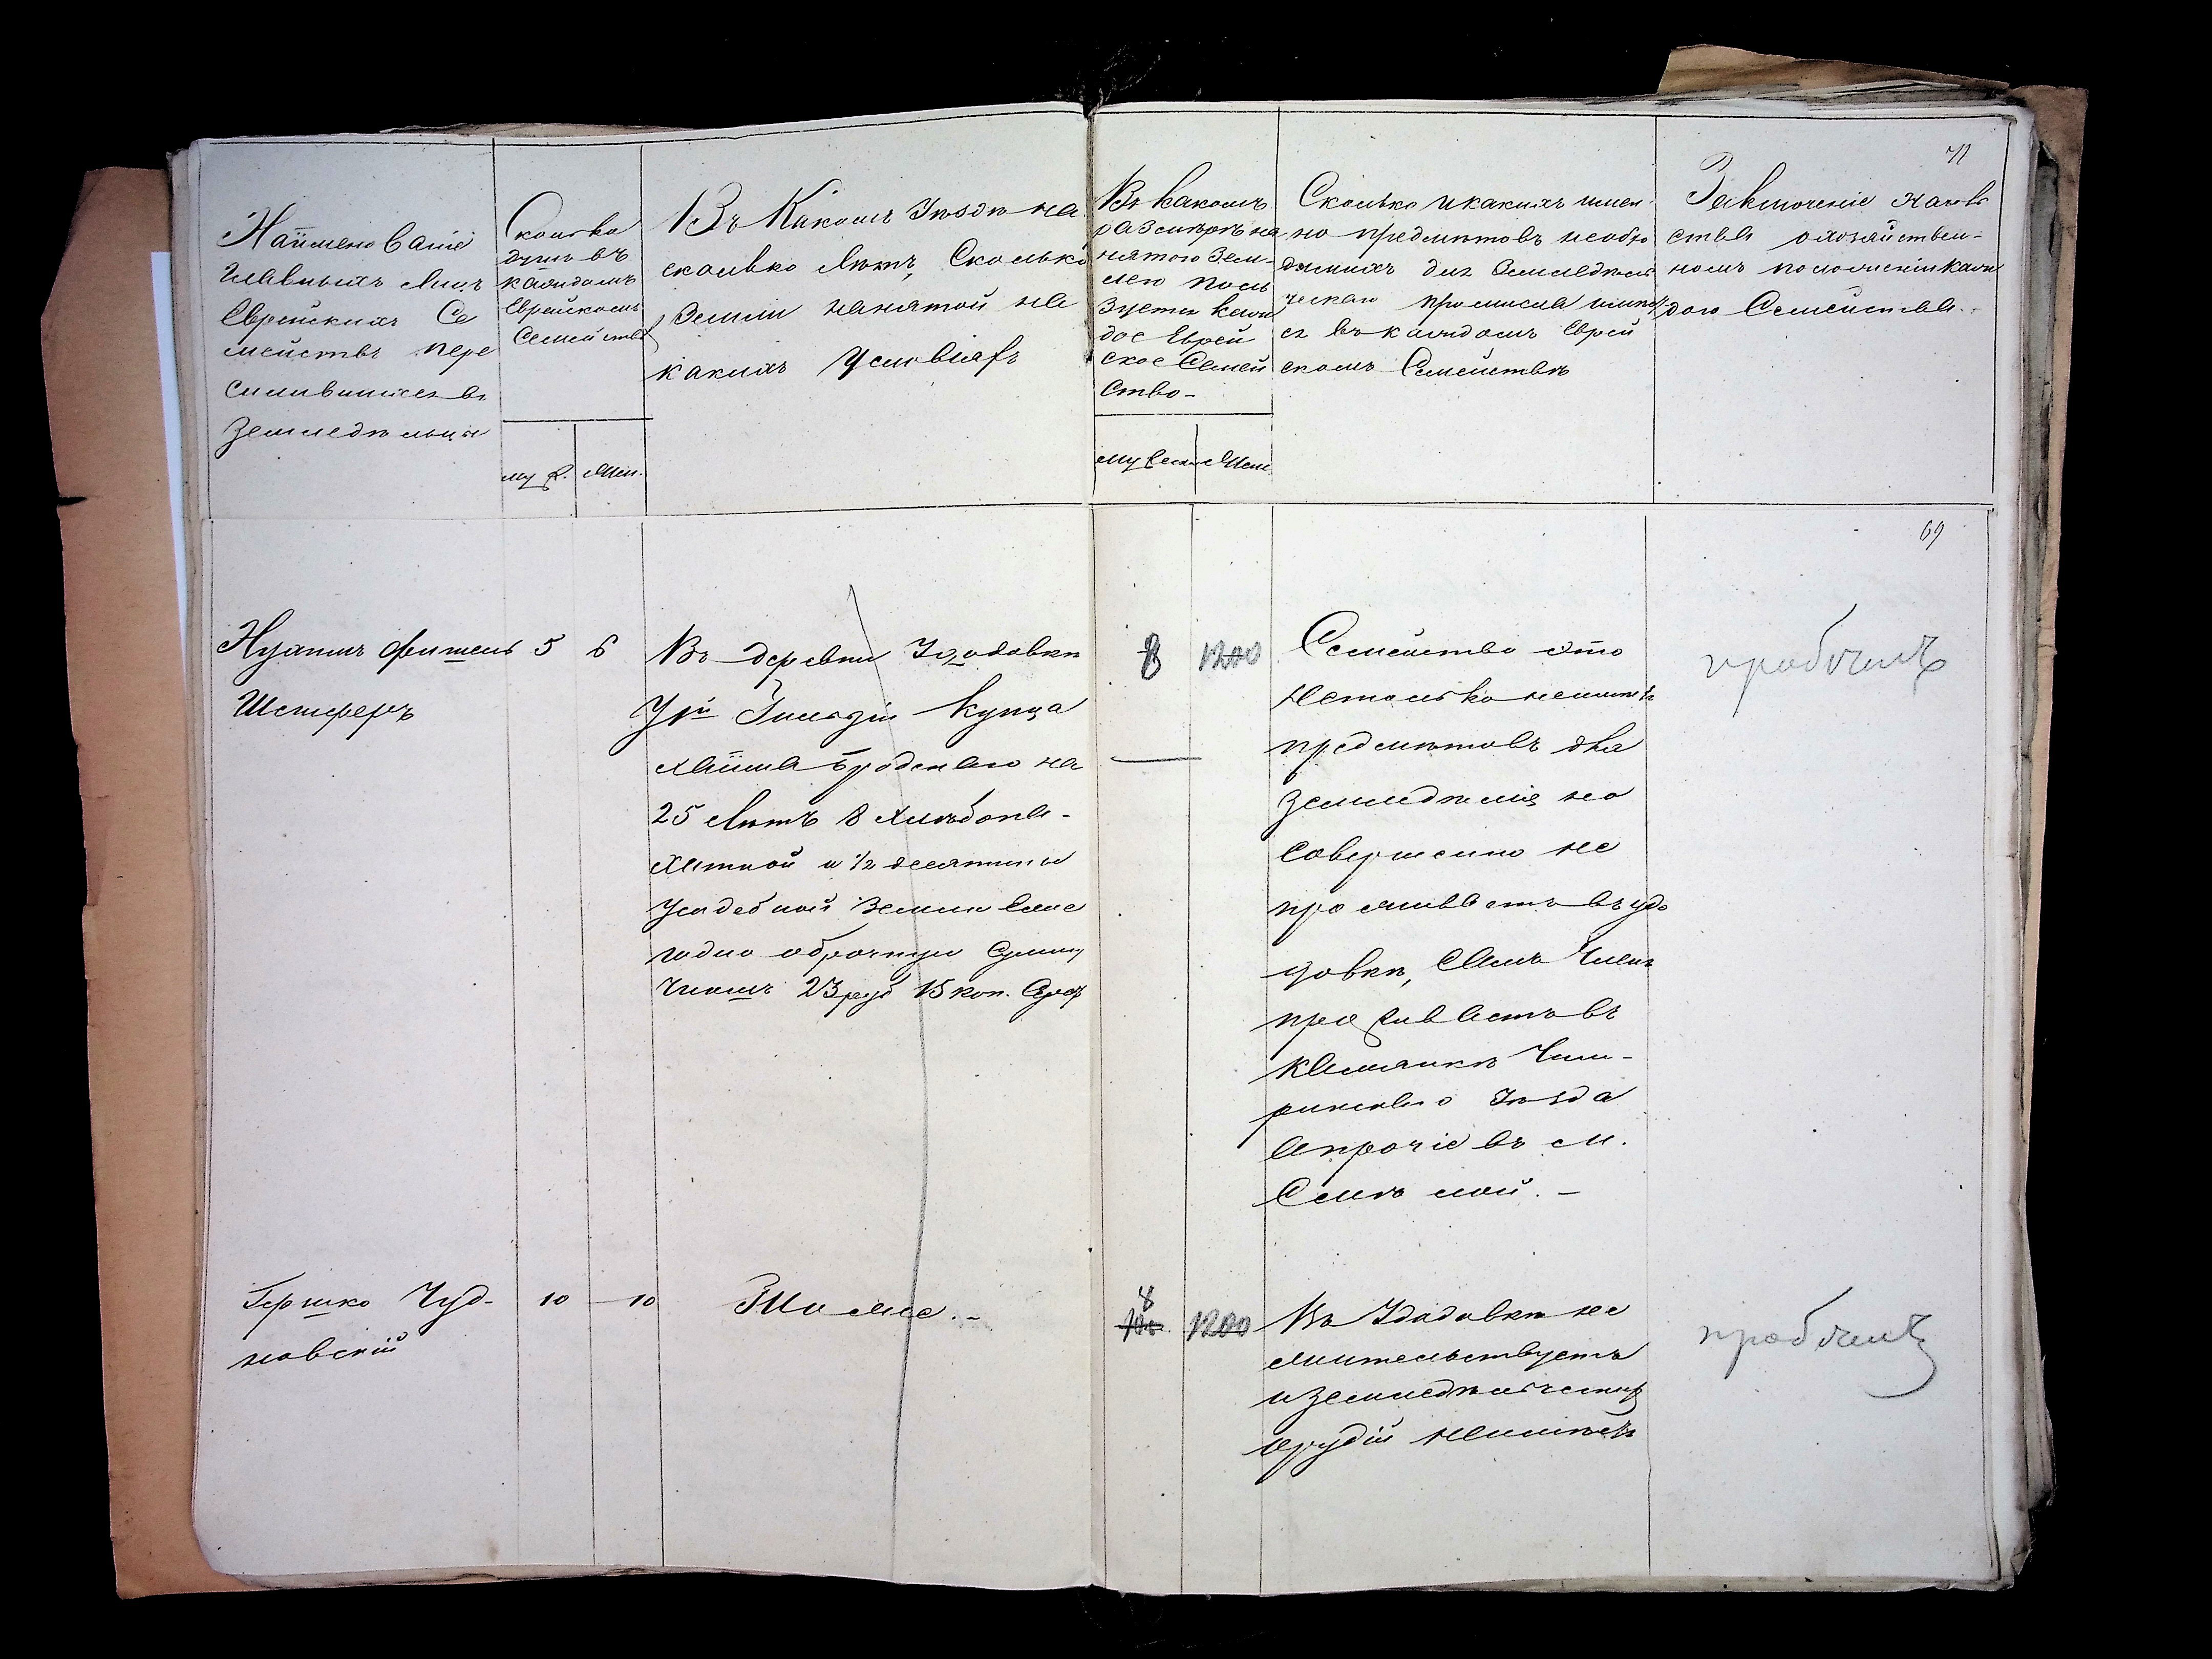 71
Наименованіе
главныхъ лицъ
Еврейскихъ Се
мействъ пере
силившихся въ
земледѣльцы
Сколько
душъ въ
каждомъ
Еврейскомъ
Семействѣ
муж. Жен.
Въ Какомъ Уѣздѣ на
сколько лѣтъ, Сколько
земли нанятой на
какихъ Условіяхъ
Въ какомъ
размѣрѣ на
нятою Зем-
лею поль
зуется каж
дое Еврей
ское Семей
ство-
Сколько и какихъ имен
но предметовъ необхо
димыхъ для Земледѣль
ческаго промысла имѣет
ся въ каждомъ Еврей
скомъ Семействѣ
Заключеніе Началь
ства о хозяйствен-
номъ положеніи каж
дого Семейства.-
69
Шстиферъ 5 6
Въ деревни
Купца
Хаима Бродскаго на
25 Лѣтъ 8 Хлѣбопа-
хатной и 1/2 десятины
Усадебной Земли Еже
годно оброчную Сумму
Чиншъ 23 руб 15 коп. Сер
8 1200
Семейство это
нетолько неимѣетъ
предмѣтовъ для
земледелія но
совершенно не
проживаетъ въ
проживаетъ въ
Каменкѣ Чиги-
ринскаго Уѣзда
а прочіе въ м.
Смѣлой. -
Гершко Чуд-
новскій
10 10
Тоже.-
8
1200
Въ не
жительствуетъ
и земледѣльческихъ
орудій неимѣетъ